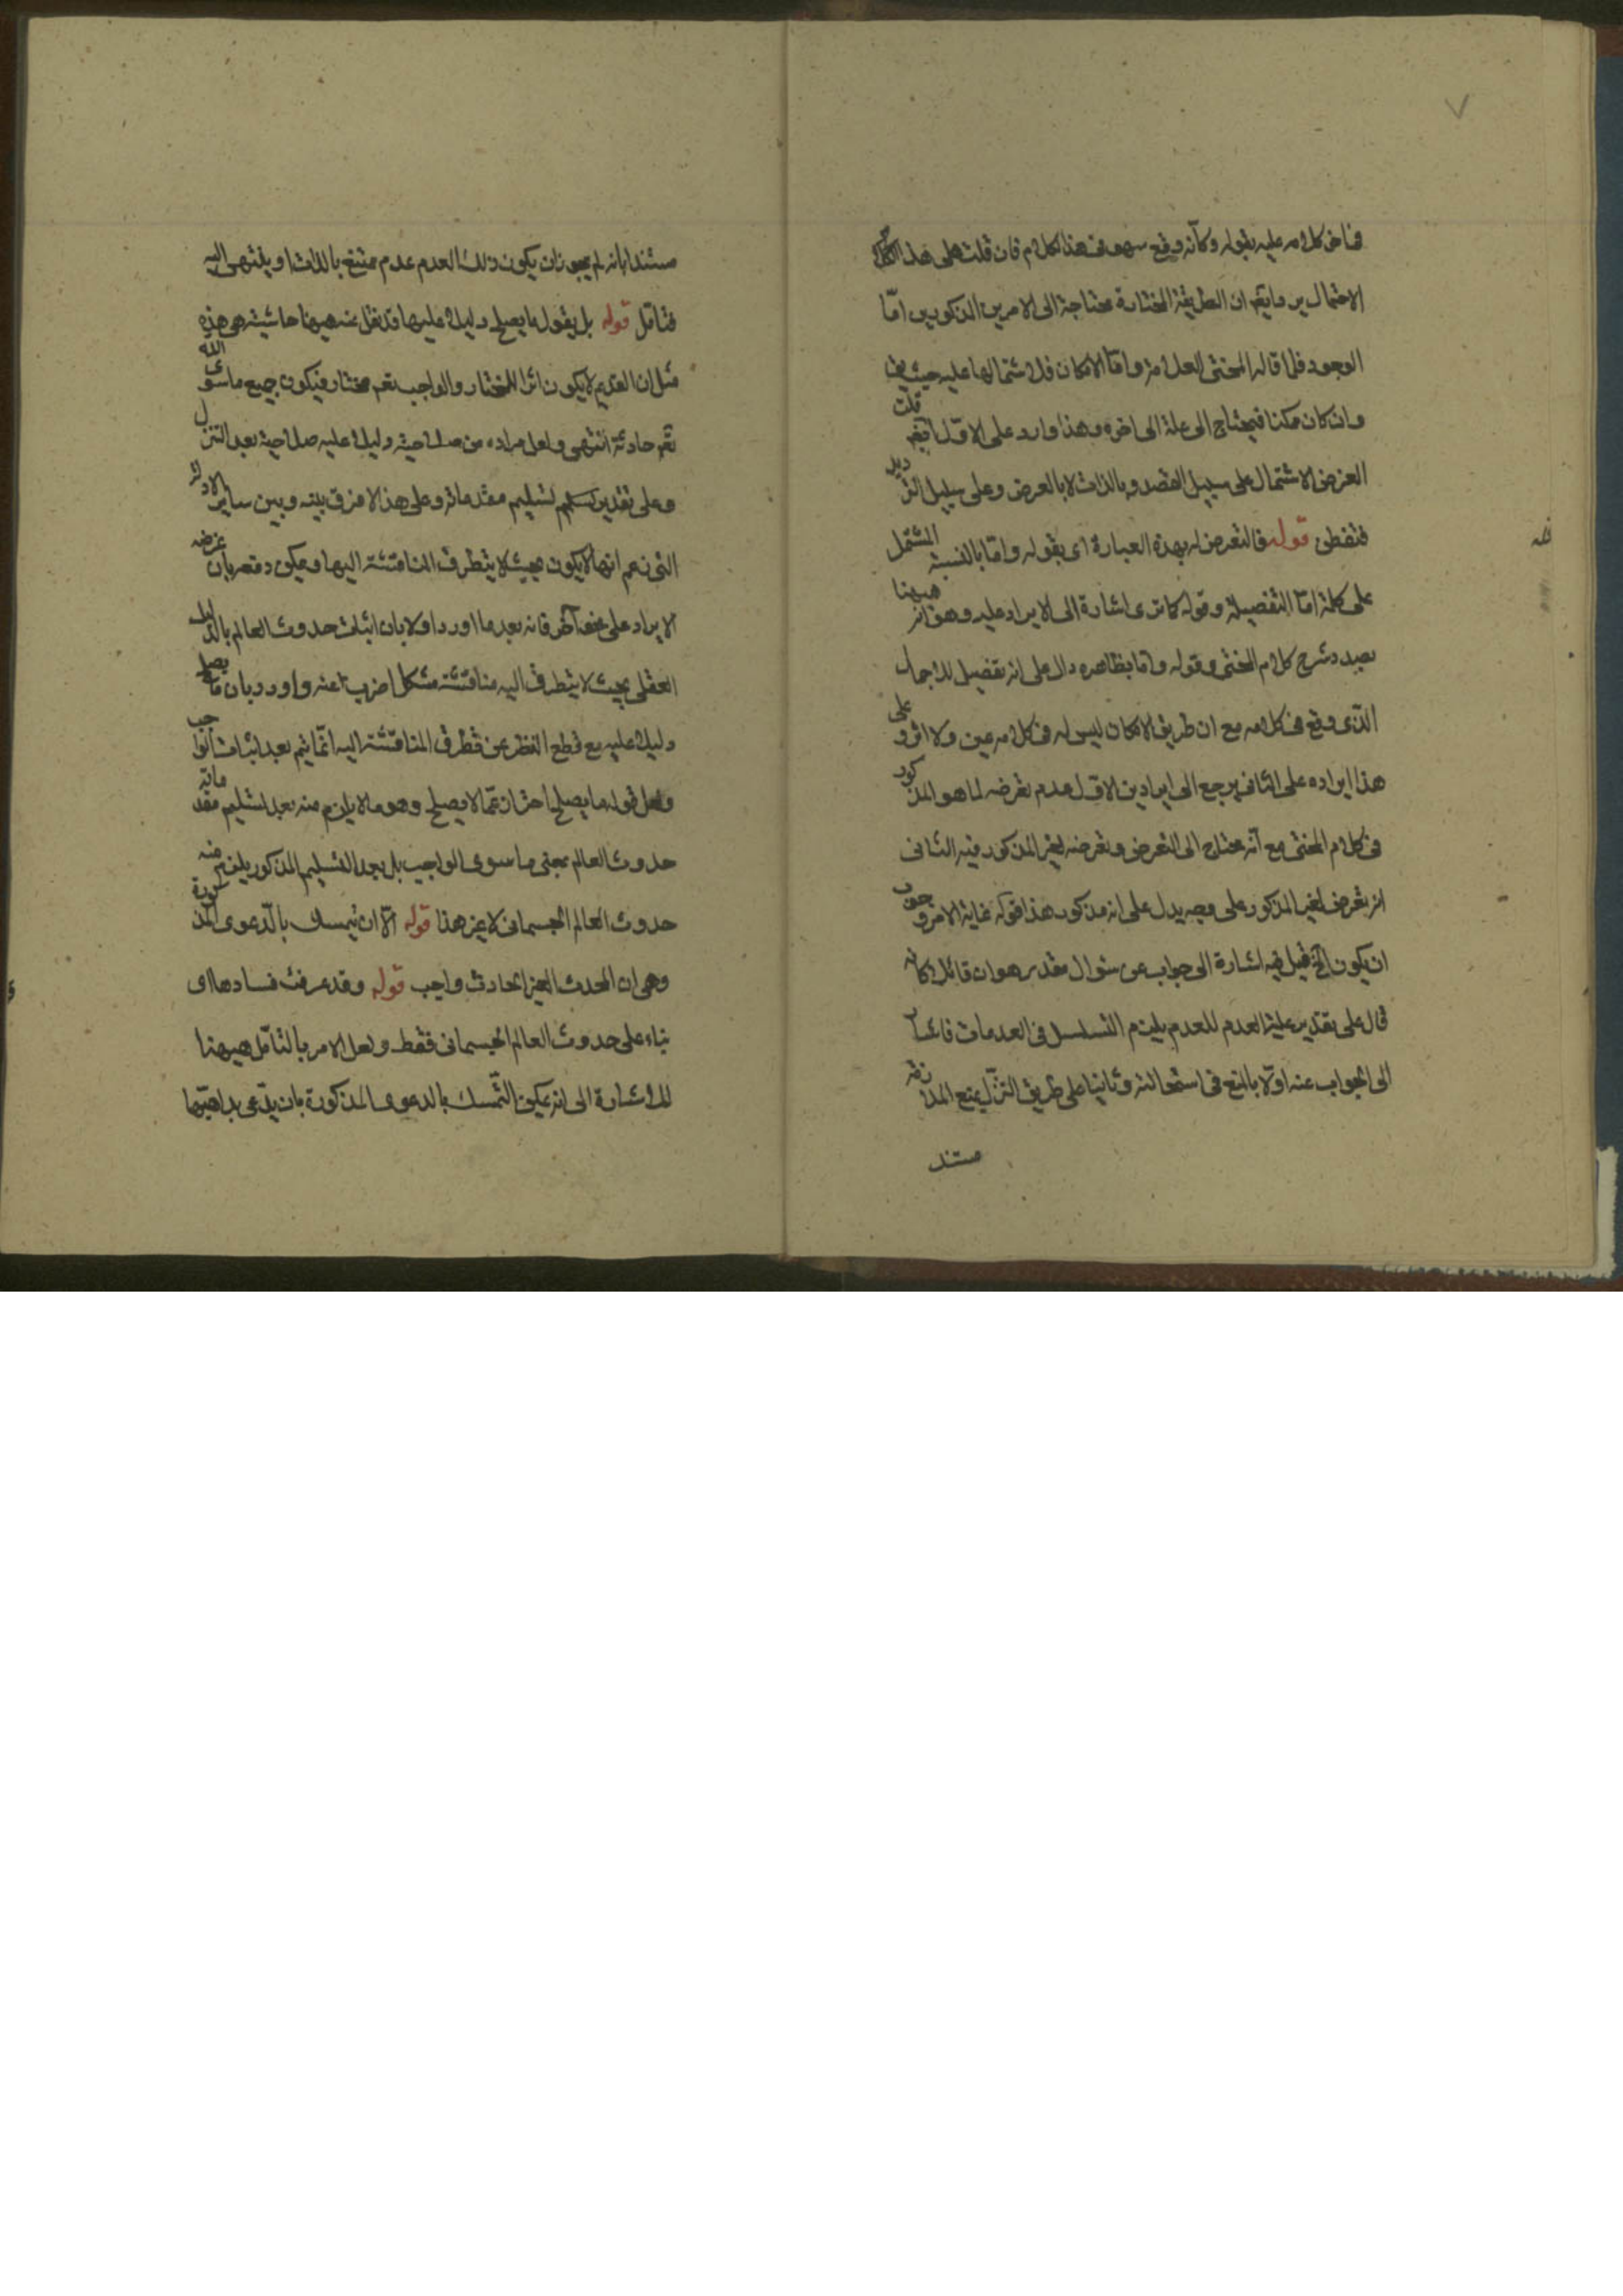 فناخى كلامه عليه بقوله وكانه وقع سهو فى هذا الكلام فان قلت على هذا
الاحتمال يرد ما يقم ان الطريقة المختارة محتاجة الى الامرين المذكورين امّا
الوجود فلما قاله المحشى العلامة واما الامكان فلاشتمالها عليه حيث يقم
وان كان ممكنا فيحتاج الى علة الى اخره وهذا وارد على الاوّل ايضم قلت
الغرض الاشتمال على سبيل القصد وبالذات لا بالعرض وعلى سبيل الترديد
فتفطن قوله فالتعرض له بهذه العبارة اى بقوله وامّا بالنسبة المشتمل
على كلمة امّا التفصيلة وقوله كما ترى اشارة الى الايراد عليه وهو انه ههنا
بصدد شرح كلام المحشى وقوله واما بظاهره دال على انه تفصيل للاجمال
الذى وقع فى كلامه مع ان طريق الامكان ليس له فى كلامه عين ولا اثر و على
هذا ايراده على الثانى يرجع الى ايرادين الاول عدم تعرضه لما هو المذكور
فى كلام المحشى مع انّه محتاج الى التعرض وتعرضه لغير المذكور فيه الثانى
انه تعرض لغير المذكور على وجه يدل على انه مذكور هذا قوله غاية الامر وجوب
ان يكون الخ قيل فيه اشارة الى جواب عن سؤال مقدر هو ان قائلا كانه
قال على تقدير علية العدم للعدم يلزم التسلسل فى العدمات فاشا
الى الجواب عنه اولا بالمنع فى استحالته وثانيا على طريق التنزّل بمنع الملازمة
مستند
مستندا بانه لم يجوز ان يكون ذلك العدم عدم ممتنع بالذات او ينتهى اليه
فتامّل قوله بل يقول ما يصلح دليلا عليها قد نقل عنه ههنا حاشية هى هذه
مثل ان القديم لا يكون اثر المختار والواجب تعم مختار فيكون جميع ما سوى الله
تعم حادثة انتهى ولعل مراده من صلاحيته دليلا عليه صلاحيته بعد التنزل
وعلى تقدير تسليم مقدماته وعلى هذا لا فرق بينه وبين ساير الادلة
التى زعم انها لا يكون بحيث لا يتطرق المناقشة اليها ويمكن دفعه بان غرضه
الايراد على نحو آخر فانه بعد ما اورد اولا بان اثبات حدوث العالم بالدليل
العقلى بحيث لا يتطرق اليه مناقشة مشكل اضرب عنه واورد بان ما يصلح
دليلا عليه مع قطع النظر عن تطرق المناقشة اليه انّما يتم بعد اثبات الواجب
ولعل قوله ما يصلح احتراز عمّا لا يصلح وهو ما لا يلزم منه بعد تسليم مقدماته
حدوث العالم بمعنى ما سوى الواجب بل بعد التسليم المذكور يلزم منه
حدوث العالم الجسمانى لا غير هذا قوله الّا ان يتمسك بالدّعوى المذكورة
وهى ان المحدث لغير الحادث واجب قوله وقد عرفت فسادها اى
بناء على حدوث العالم الجسمانى فقط ولعل الامر بالتامّل ههنا
للاشارة الى انه يمكن التّمسك بالدعوى المذكورة بان يدّعى بداهتها